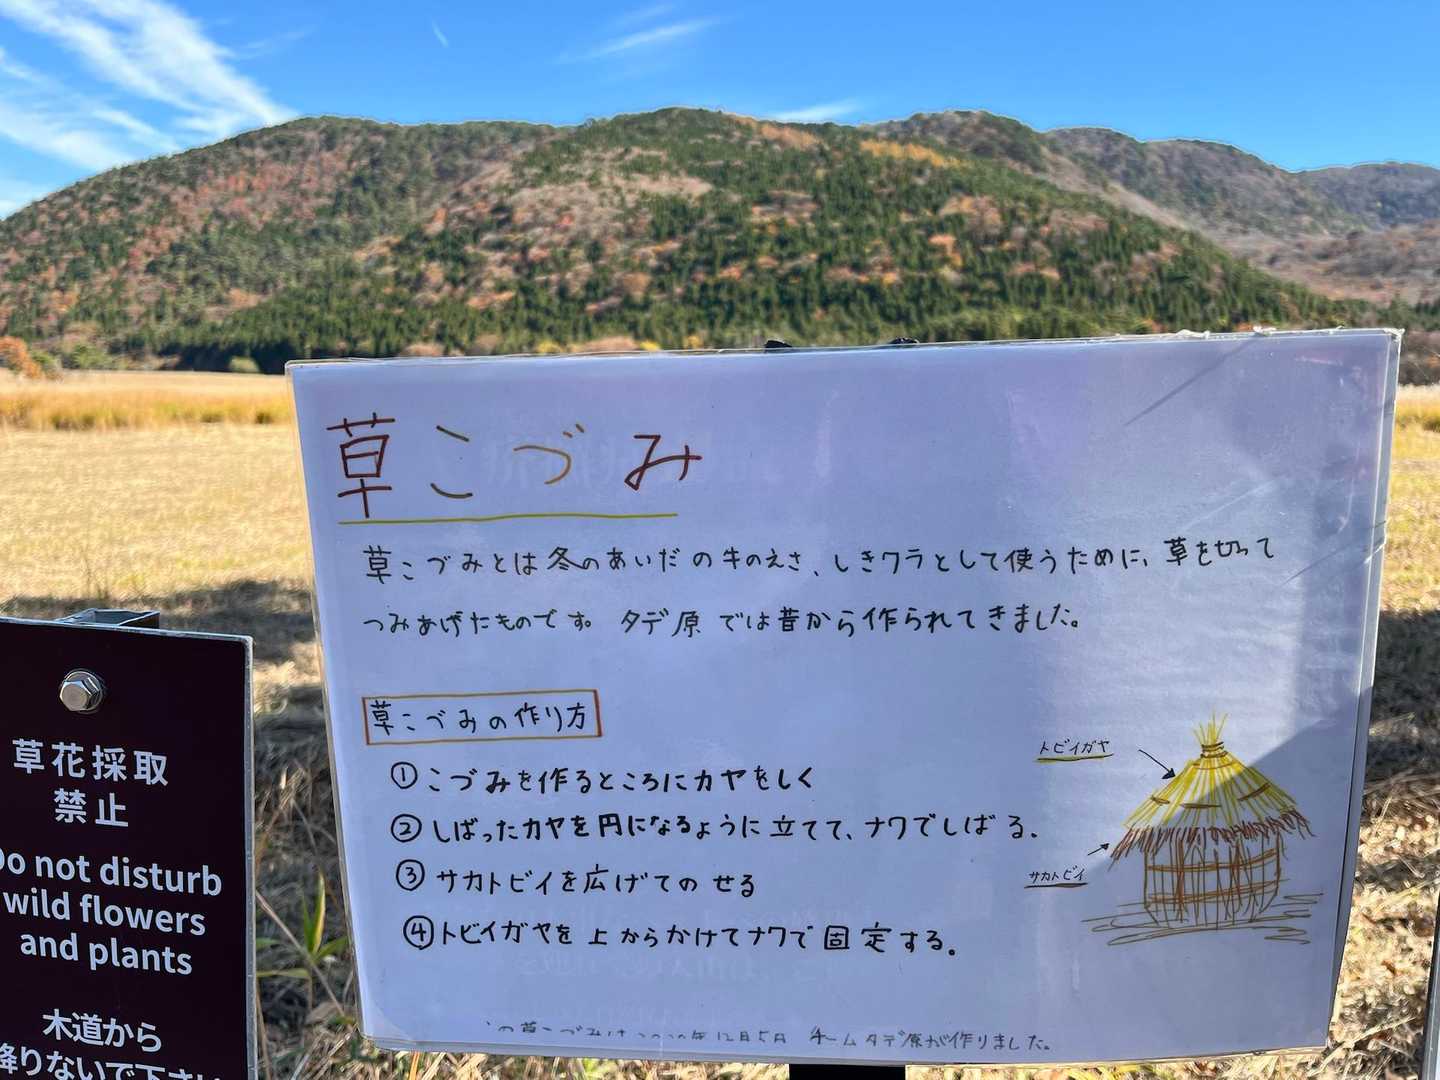 草こづみ
草こづみとは冬のあいだの牛のえさ、しきワラとして使うために、草を切って
つみあげたものです。タデ原では昔から作られてきました。
草こづみの作り方
①こづみを作るところにカヤをしく
②しばったカヤを円になるように立てて、ナワでしばる.
③サカトビイを広げてのせる
④トビイガヤを上からかけてナワで固定する。
トビイガヤ
サカトビイ
の草こづみは2020年12月5日 チームタデ原が作りました。
草花採取
禁止
Do not disturb
wild flowers
and plants
木道から
降りないで下さい